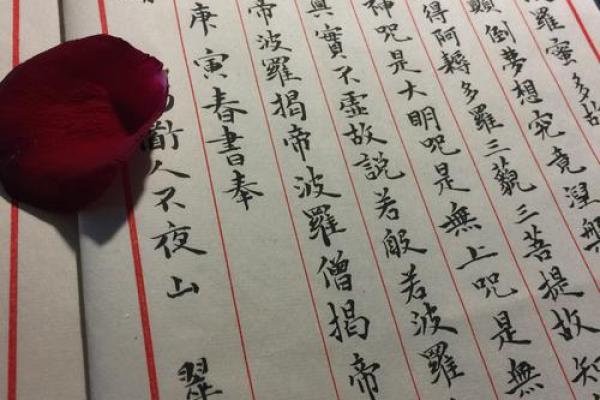 羅蜜多故
顛倒夢想究竟涅槃
得阿耨多羅三藐三菩提故知
神咒是大明咒是無上咒是無
真實不虛故說若般若波羅
帝波羅揭帝波羅僧揭帝
庚寅春書奉
人不夜山